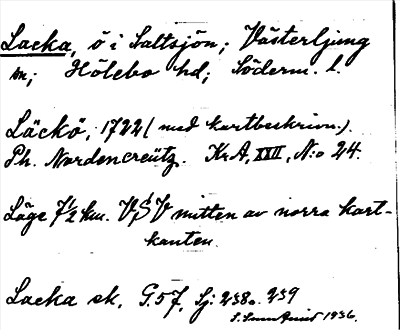 Lacka, ö i Saltsjön; Västerljung
sn; Hölebo hd; Söderm. l.
Läckö, 1722 (med kartbeskrivn.).
Ph. Nordencreütz. KrA, XXII, N:o 24.
Läge 7½ km. VSV mitten av norra kart-
kanten.
Lacka ek. G. 57, Sj: 238o. 239
1936.